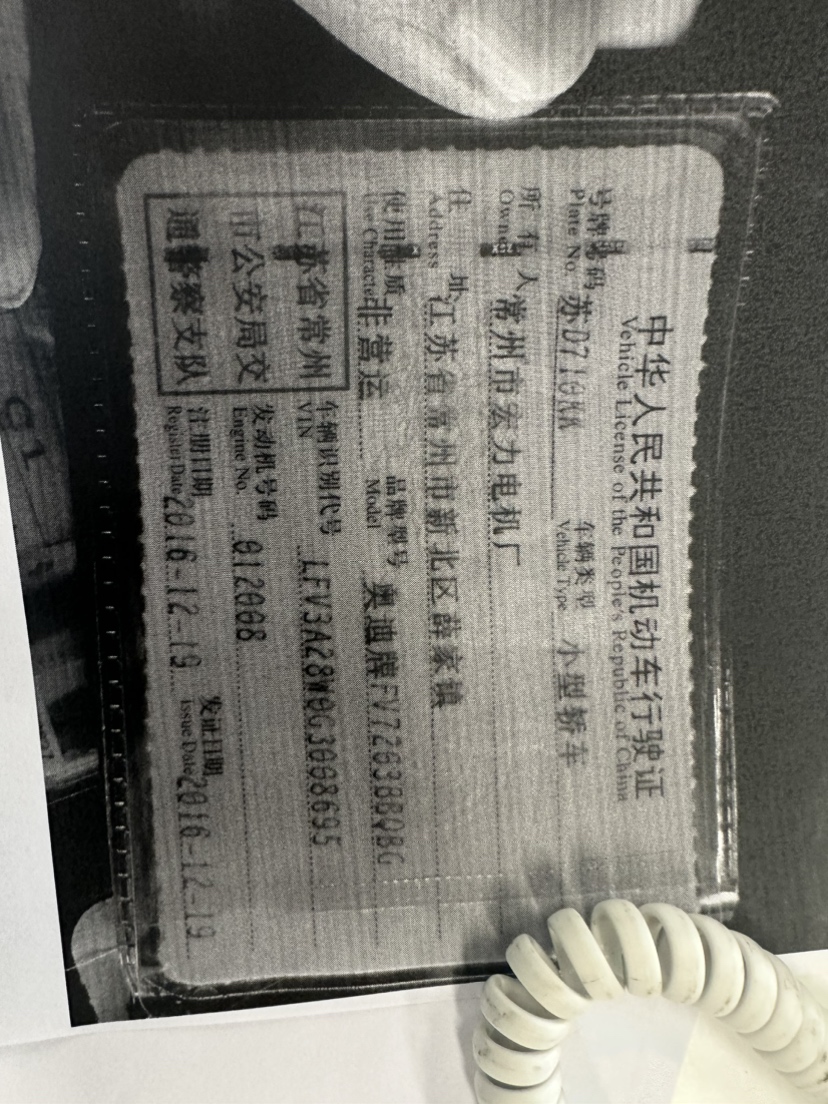 中华人民共和国机动车行驶证
Vehicle License of the People's Republic of China
号牌号码 苏D710KK 车辆类型 小型轿车
Plate No. Vehicle Type
所有人 常州市宏力电机厂
Owner
住址 江苏省常州市新北区薛家镇
Address
使用性质 非营运 品牌型号 奥迪牌FV7203BBQBG
Use Character Model
江苏省常州
市公安局交
通警察支队
车辆识别代号 LFV3A28W0G3008695
VIN
发动机号码 012008
Engine No.
注册日期 2016-12-19 发证日期 2016-12-19
Register Date Issue Date